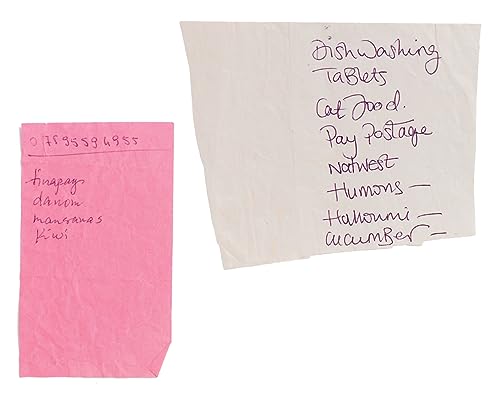 07895594955
tinapay
danom
mansanas
kiwi
Dishwashing
Tablets
Cat Food.
Pay Postage
Natwest
Humons —
Halloumi —
Cucumber —